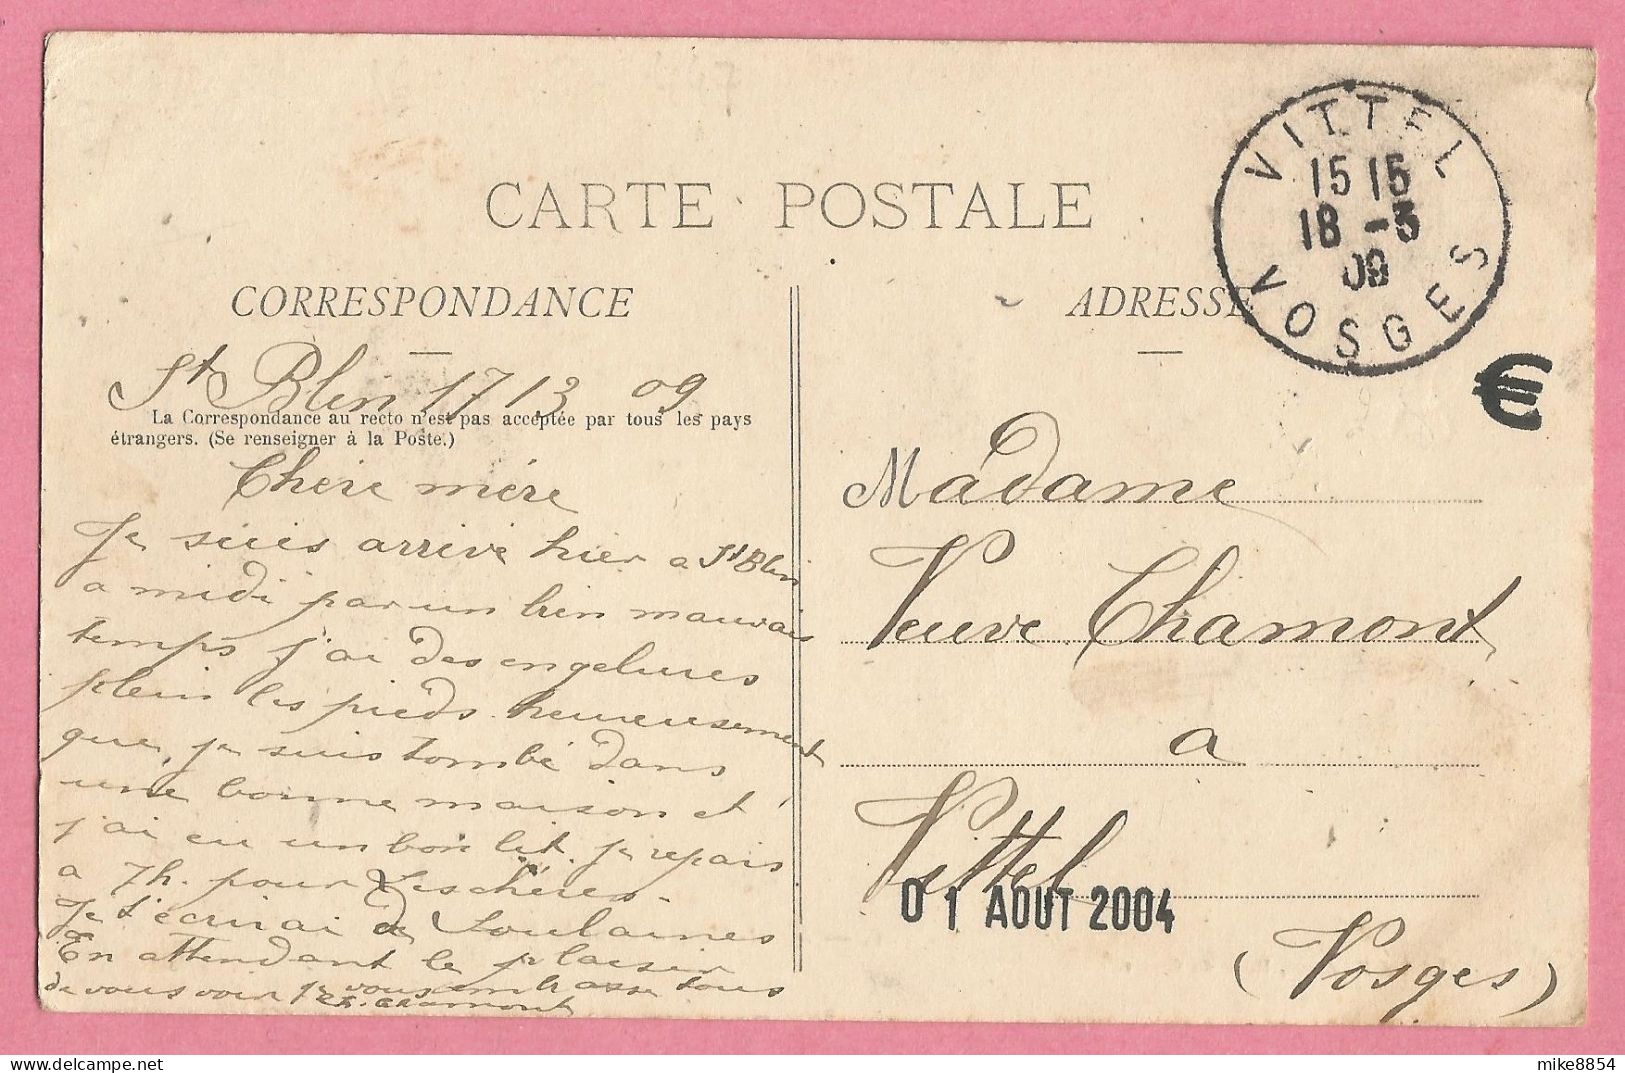 CARTE POSTALE
VITTEL
15 15
18 -3
09
VOSGES
€
CORRESPONDANCE
St Blin 17/3 09
La Correspondance au recto n'est pas acceptée par tous les pays
étrangers. (Se renseigner à la Poste.)
Chère mère
Je suis arrivé hier a St Blin
a midi par un bien mauvais
temps j'ai des engelures
plein les pieds heureusement
que je suis tombé dans
une bonne maison et
j'ai eu un bon lit. je repais
a 7h. pour Leschères.
Je t'écrirai de Soulaines
En attendant le plaisir
de vous voir je vous embrasse tous
Chamont
ADRESSE
Madame
Veuve Chamont
a
Vittel
01 AOUT 2004
(Vosges)
mike8854